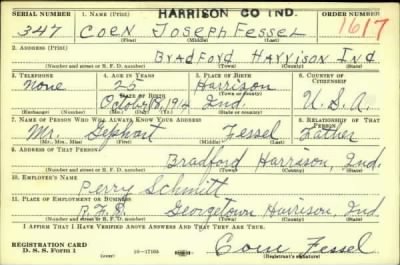 HARRISON CO IND.
SERIAL NUMBER 1. NAME (Print) ORDER NUMBER
347 COEN JOSEPH FESSEL 1617
(First) (Middle) (Last)
2. ADDRESS (Print)
BRADFORD HARRISON IND
(Number and street or R. F. D. number) (Town) (County) (State)
3. TELEPHONE 4. AGE IN YEARS 5. PLACE OF BIRTH 6. COUNTRY OF CITIZENSHIP
None 25 Harrison
DATE OF BIRTH (Town or county)
October 18, 1914 Ind. U.S.A.
(Exchange) (Number) (Mo.) (Day) (Yr.) (State or country)
7. NAME OF PERSON WHO WILL ALWAYS KNOW YOUR ADDRESS 8. RELATIONSHIP OF THAT PERSON
Mr. Gephart Fessel Father
(Mr., Mrs., Miss) (First) (Middle) (Last)
9. ADDRESS OF THAT PERSON
Bradford Harrison, Ind.
(Number and street or R. F. D. number) (Town) (County) (State)
10. EMPLOYER'S NAME
Perry Schmitt
11. PLACE OF EMPLOYMENT OR BUSINESS
R.F.D. Georgetown Harrison, Ind
(Number and street or R. F. D. number) (Town) (County) (State)
I AFFIRM THAT I HAVE VERIFIED ABOVE ANSWERS AND THAT THEY ARE TRUE.
REGISTRATION CARD
D. S. S. Form 1 16-17105 Coen Fessel
(Registrant's signature)